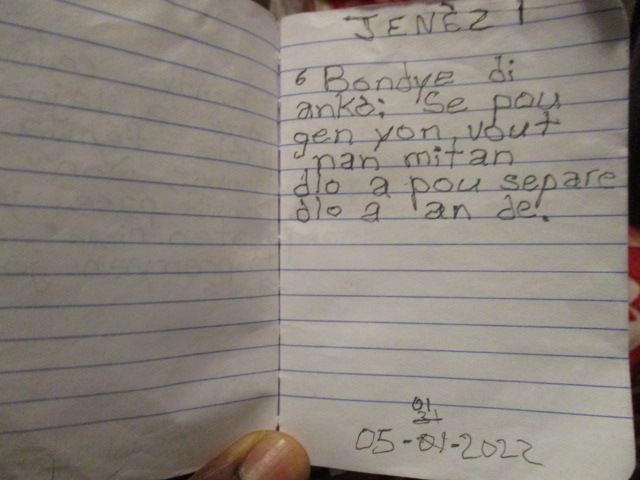 JENÈZ 1
6 Bondye di
ankò: Se pou
gen yon vout
nan mitan
dlo a pou separe
dlo a an de.
01
31
05-01-2022